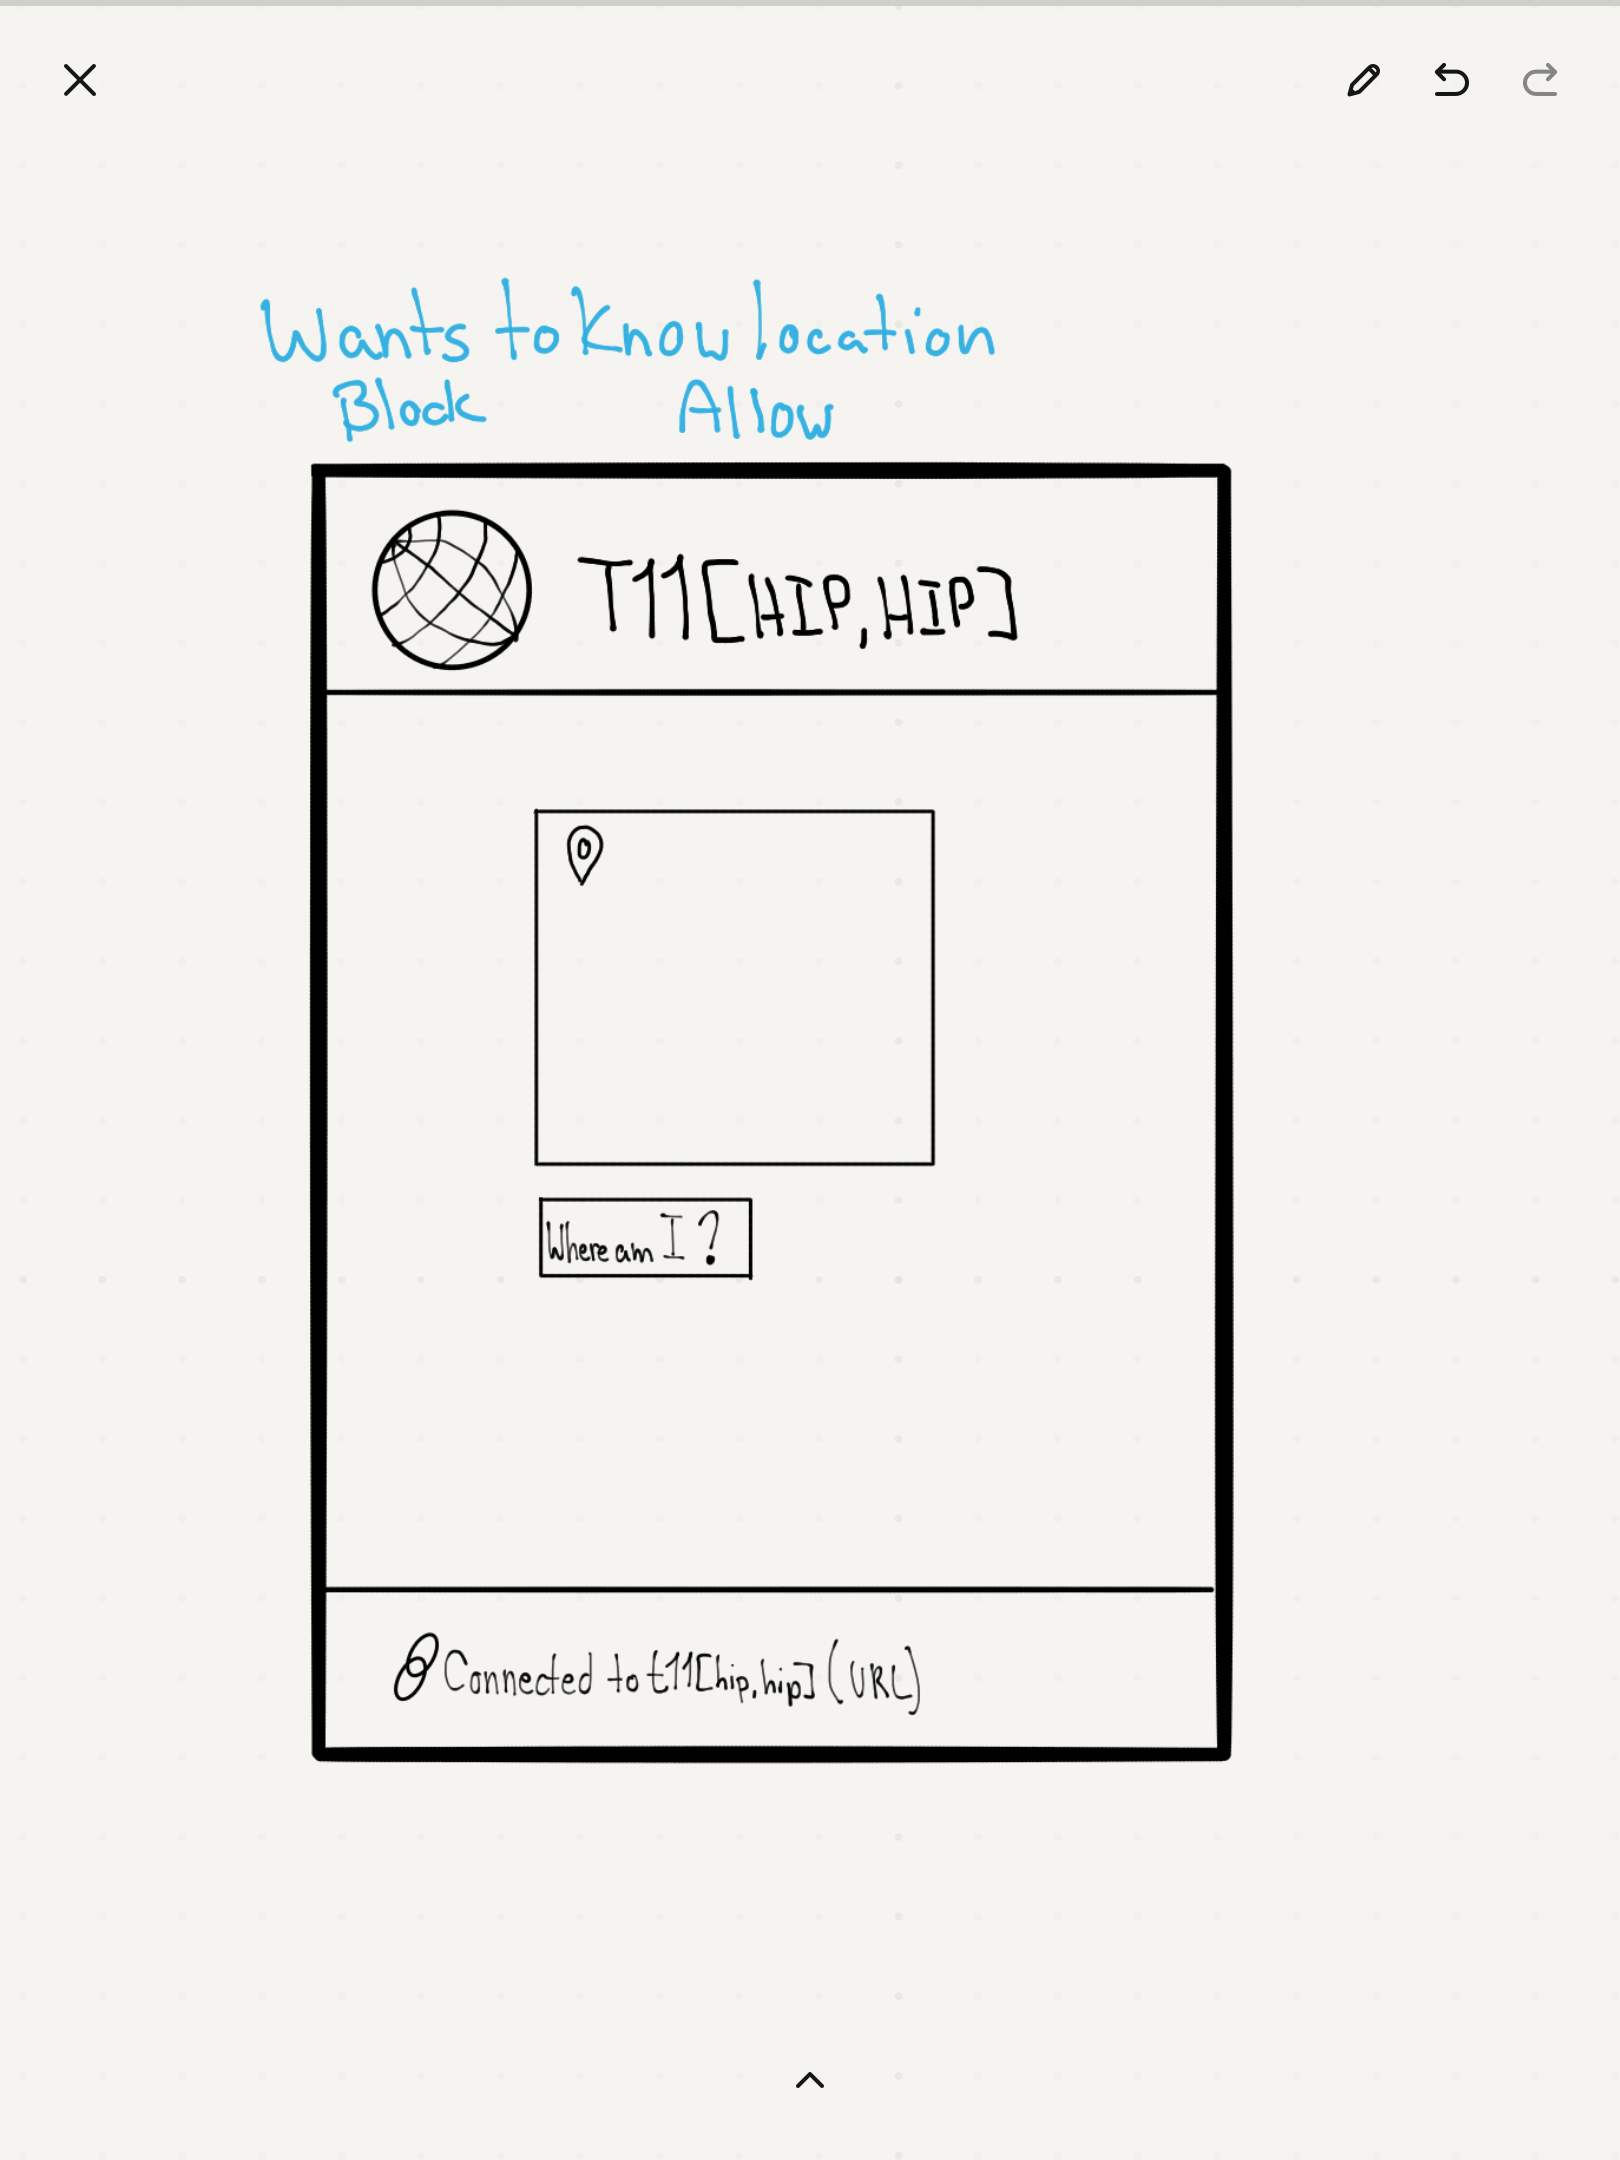 Wants to know location
Block Allow
T11[HIP,HIP]
Where am I?
Connected to t11[hip,hip] (URL)